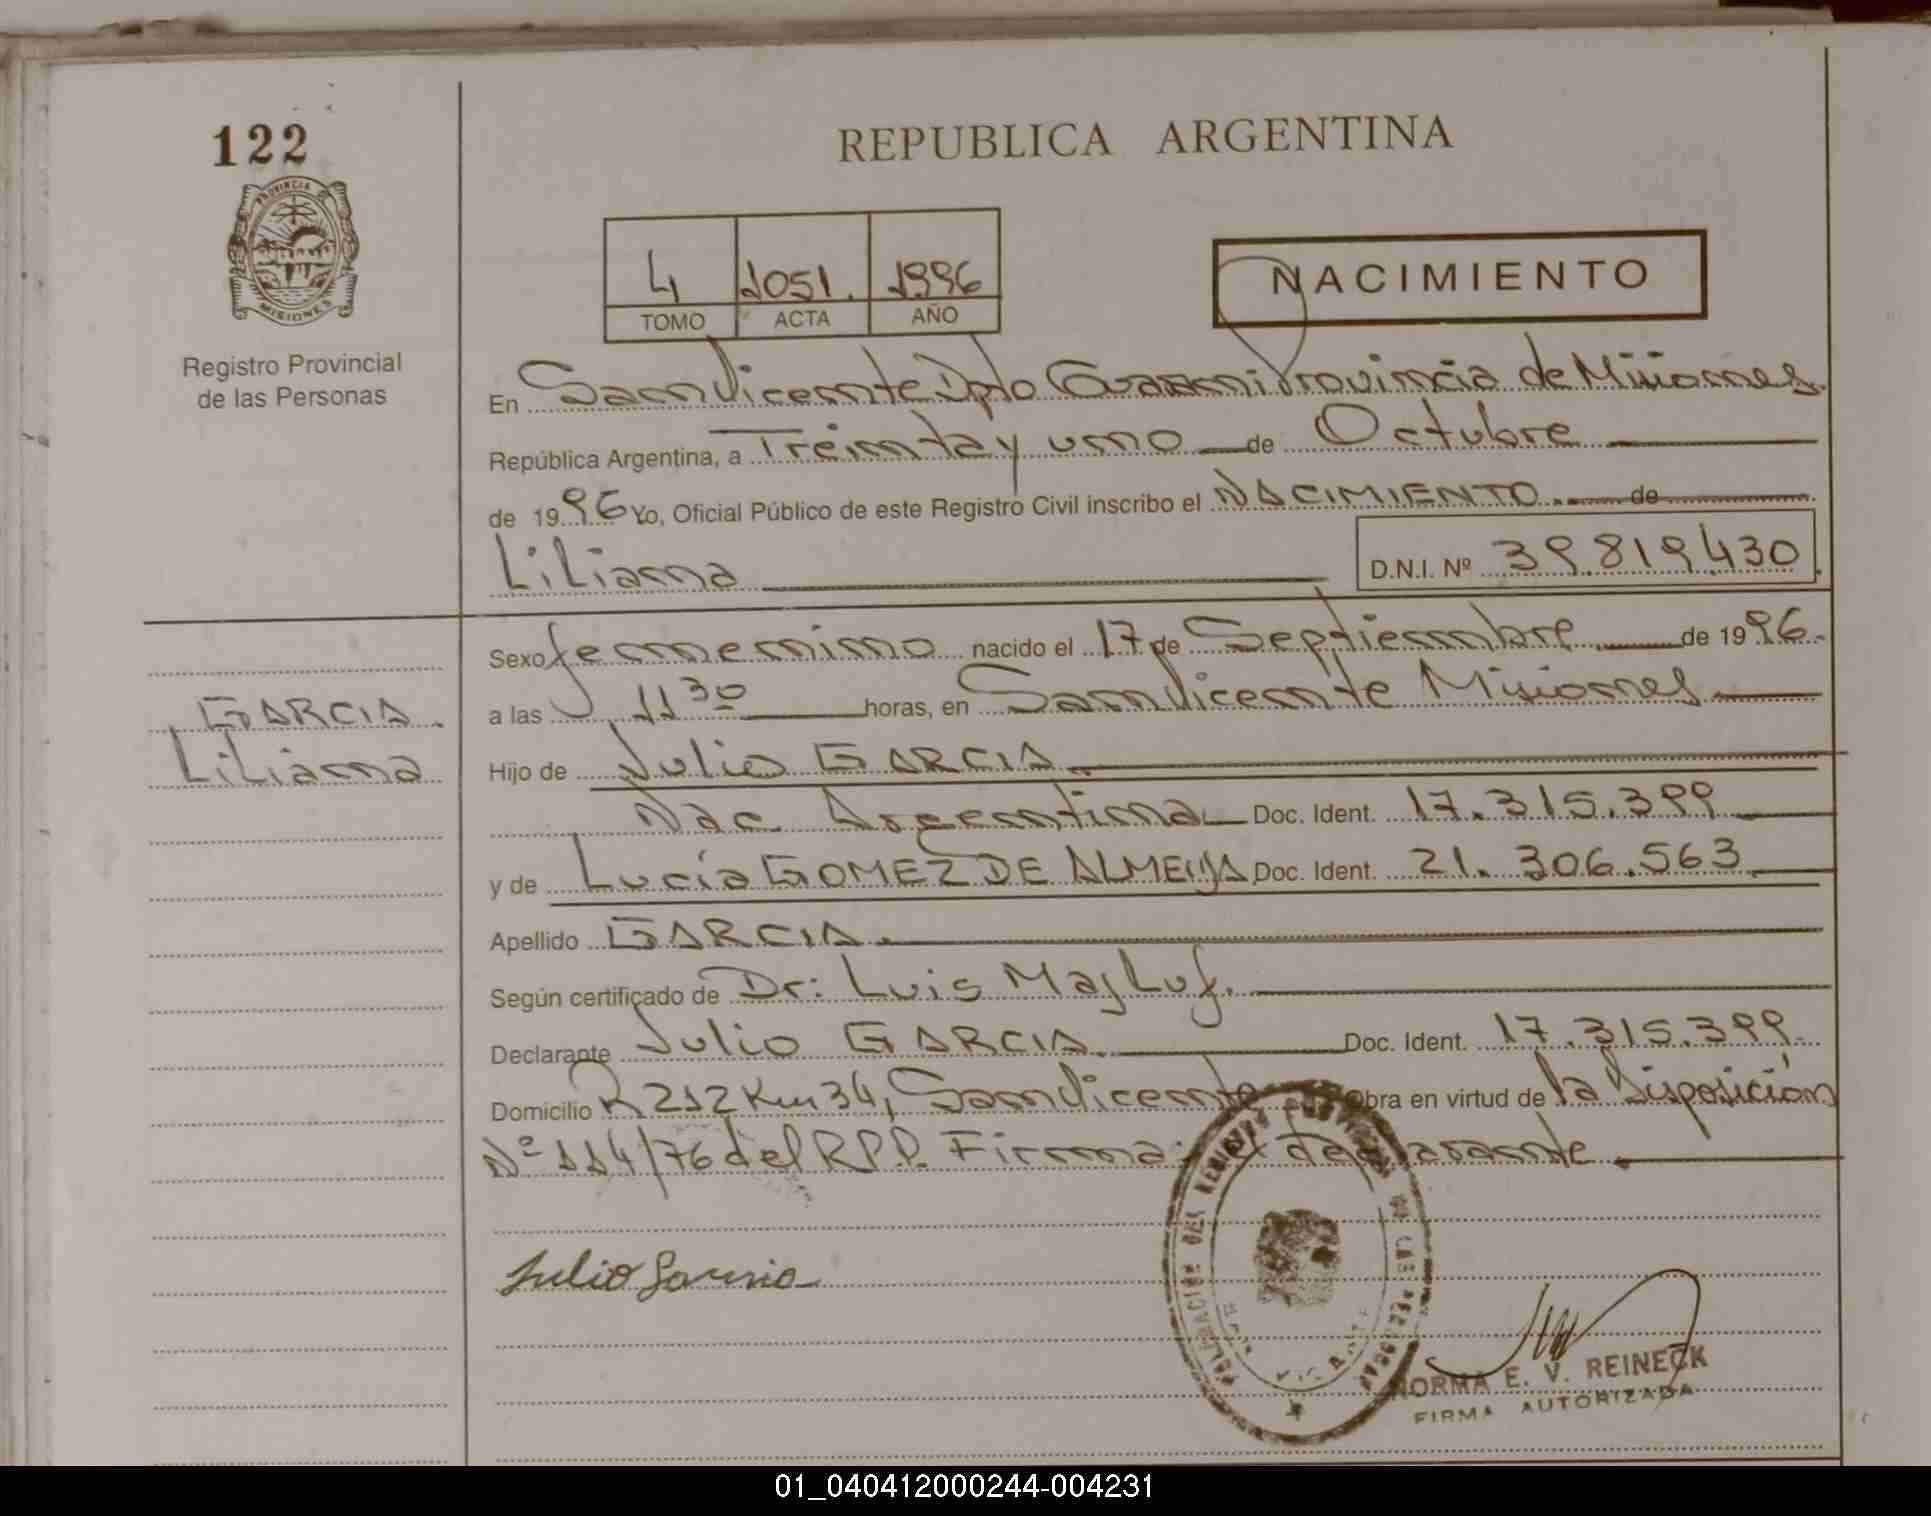 122
PROVINCIA
MISIONES
Registro Provincial
de las Personas
REPUBLICA ARGENTINA
4 1051. 1996
TOMO ACTA AÑO
NACIMIENTO
En San Vicente Dpto Guarani Provincia de Misiones.
República Argentina, a Treinta y uno de Octubre
de 1996 Yo, Oficial Público de este Registro Civil inscribo el NACIMIENTO. de
Liliana D.N.I. Nº 39.819.430
Sexo femenino nacido el 17 de Septiembre de 1996.
a las 11 30 horas, en San Vicente Misiones
GARCIA.
Liliana
Hijo de Julio GARCIA.
Nac. Argentina Doc. Ident. 17.315.399
y de Lucía GOMEZ DE ALMEIDA Doc. Ident. 21.306.563
Apellido GARCIA.
Según certificado de Dr: Luis Majluf.
Declarante Julio GARCIA. Doc. Ident. 17.315.399.
Domicilio R 212 Km 34, San Vicente Obra en virtud de la Disposición
Nº 114/76 del R.P.P. Firma: el declarante.
Julio Garcia
NORMA E. V. REINECK
FIRMA AUTORIZADA
01_040412000244-004231